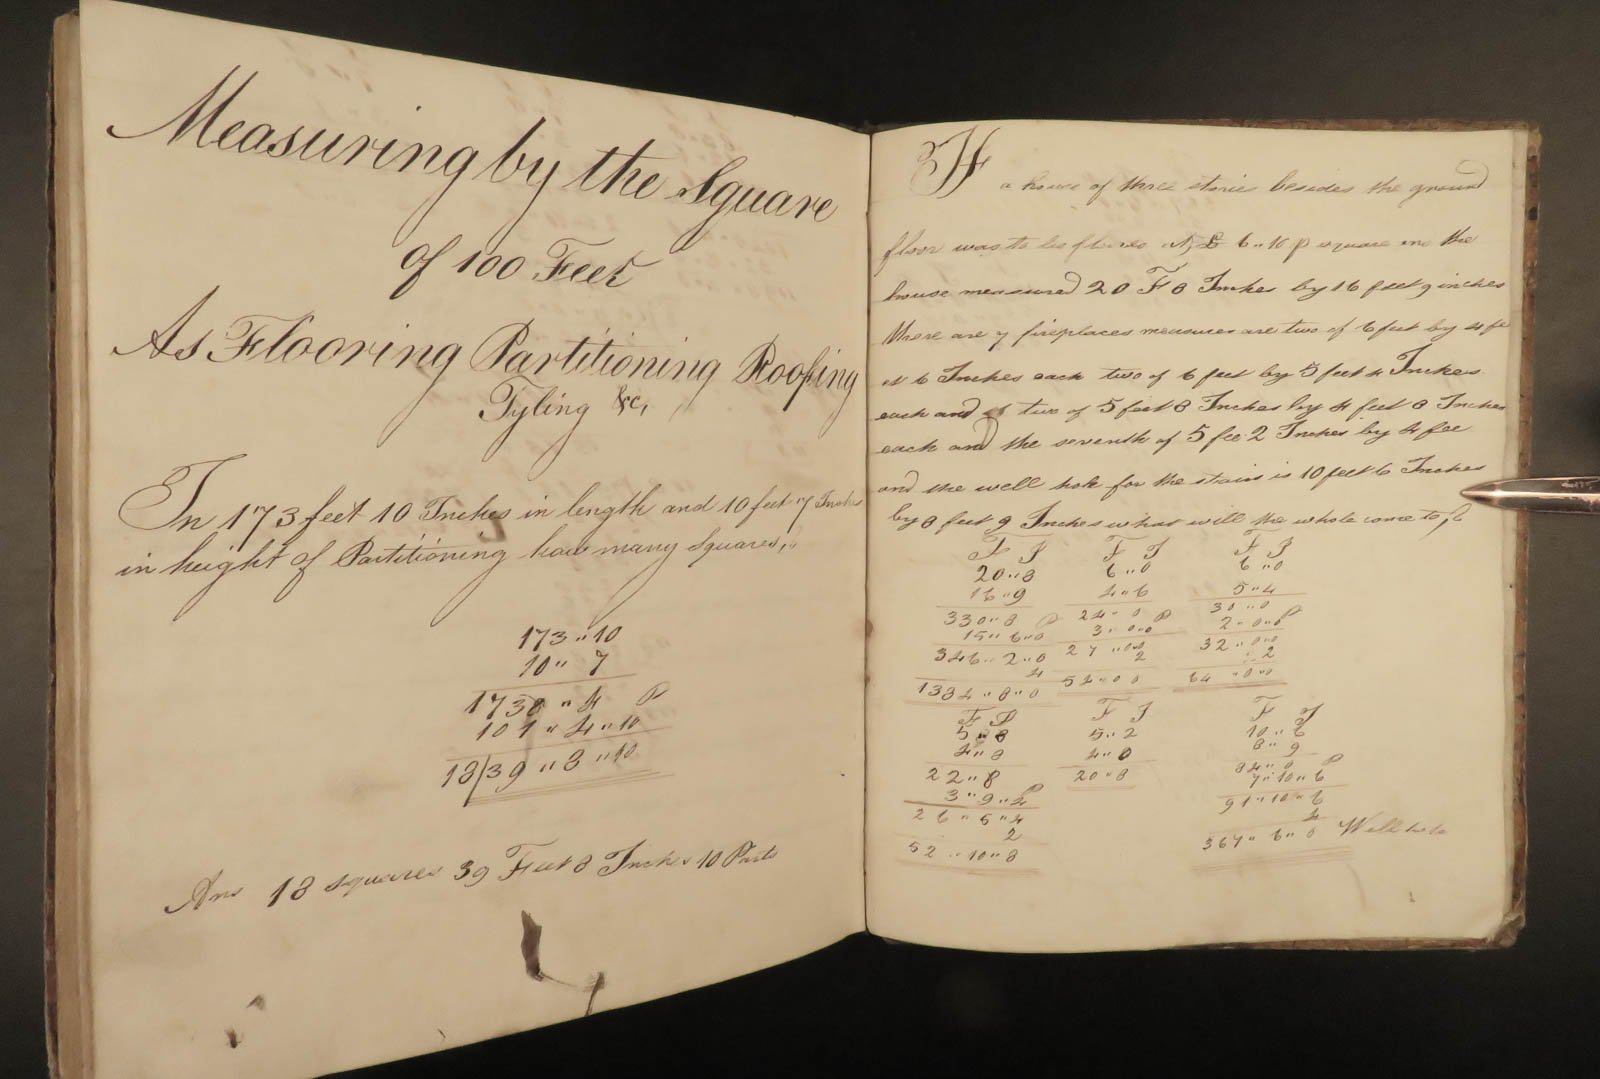 Measuring by the Square
of 100 Feet
As Flooring Partitioning Roofing
Tyling &c,
In 173 feet 10 Inches in length and 10 feet 7 Inches
in height of Partitioning how many Squares,
173 " 10
10 " 7
1738 " 4 P
101 " 4 " 10
18/39 " 8 " 10
Ans 18 squares 39 Feet 8 Inches 10 Parts
If a house of three stories besides the ground
floor was to be floored At £ 6 " 10 p square and the
house measured 20 F 8 Inches by 16 feet 9 inches
there are 7 fireplaces measures are two of 6 feet by 4 fe
et 6 Inches each two of 6 feet by 5 feet 4 Inches
each and of two of 5 feet 8 Inches by 4 feet 8 Inches
each and the seventh of 5 fee 2 Inches by 4 fee
and the well hole for the stairs is 10 feet 6 Inches
by 8 feet 9 Inches what will the whole come to
F I F I F I
20 " 8 6 " 0 6 " 0
16 " 9 4 " 6 5 " 4
330 " 8 P 24 " 0 P 30 " 0 P
15 " 6 " 0 3 " 0 " 0 2 " 0 " 0
346 " 2 " 0 27 " 0 " 0 32 " 0 " 0
4 2 2
1384 " 8 " 0 54 " 0 0 64 " 0 " 0
F I F I F I
5 " 8 5 " 2 10 " 6
4 " 8 4 " 0 8 " 9
22 " 8 P 20 " 8 84 " 0 P
3 " 9 " 4 7 " 10 " 6
26 " 5 " 4 91 " 10 " 6
2 4
52 " 10 " 8 367 " 6 " 0 Well hole